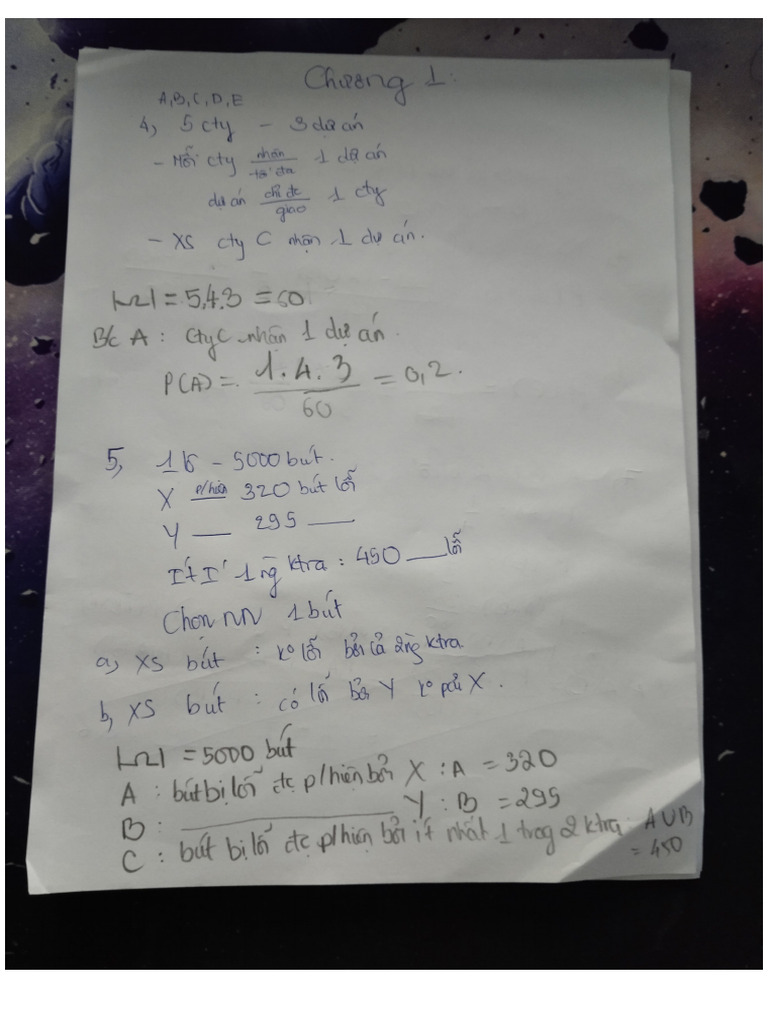 Chương 1:
A,B,C,D,E
4, 5 cty - 3 dự án
- Mỗi cty nhận tối đa 1 dự án
dự án chỉ đc giao 1 cty
- XS cty C nhận 1 dự án.
|Ω| = 5.4.3 = 60
B/c A : Cty C nhận 1 dự án.
P(A) = 1.4.3 / 60 = 0,2.
5, 1 lô - 5000 bút.
X p/hiện 320 bút lỗi
Y — 295 —
Ít I' 1 ng ktra : 450 — lỗi
Chọn NN 1 bút
a, XS bút : ko lỗi bởi cả 2 ng ktra
b, XS bút : có lỗi bởi Y ko phải X.
|Ω| = 5000 bút
A : bút bị lỗi đc p/hiện bởi X : A = 320
B : — Y : B = 295
C : bút bị lỗi đc p/hiện bởi ít nhất 1 trog 2 ktra : A∪B
= 450